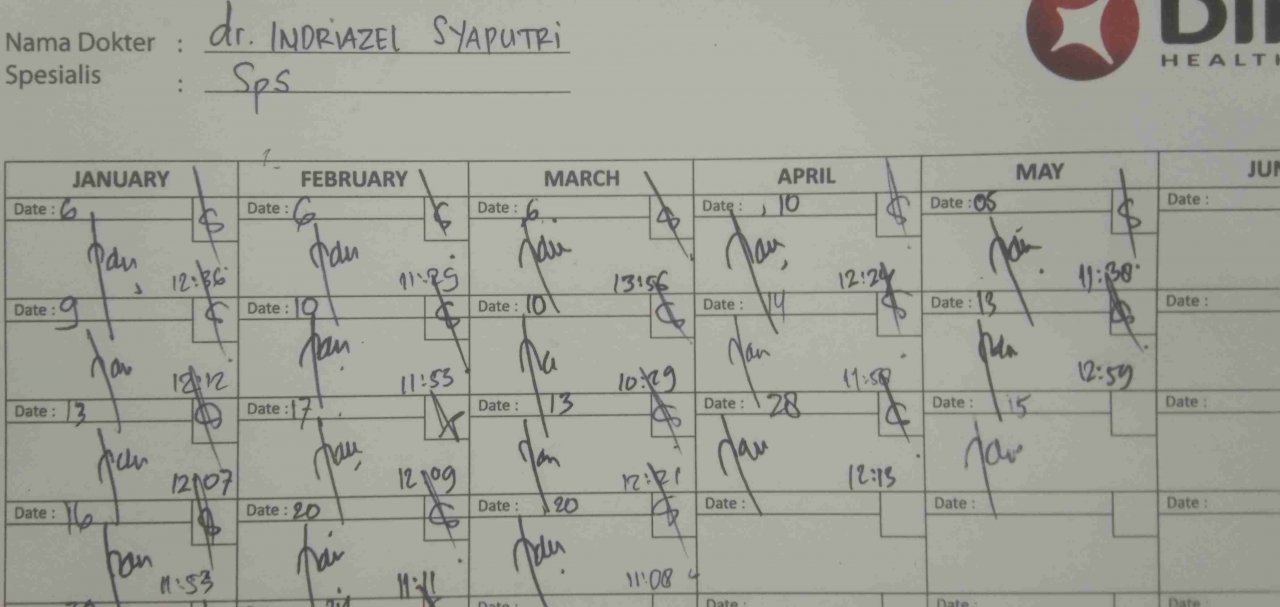 Nama Dokter : dr. INDRIAZEL SYAPUTRI
Spesialis : SpS
HEALTH
JANUARY FEBRUARY MARCH APRIL MAY
Date : 6 Date : 6 Date : 6 Date : 10 Date : 05 Date :
12:36 11:29 13:56 12:24 11:38
Date : 9 Date : 10 Date : 10 Date : 14 Date : 13 Date :
12:12 11:53 10:29 11:58 12:59
Date : 13 Date : 17 Date : 13 Date : 28 Date : 15 Date :
12:07 12:09 12:21 12:13
Date : 16 Date : 20 Date : 20 Date : Date : Date :
11:53 11:11 11:08
Date : Date : Date :